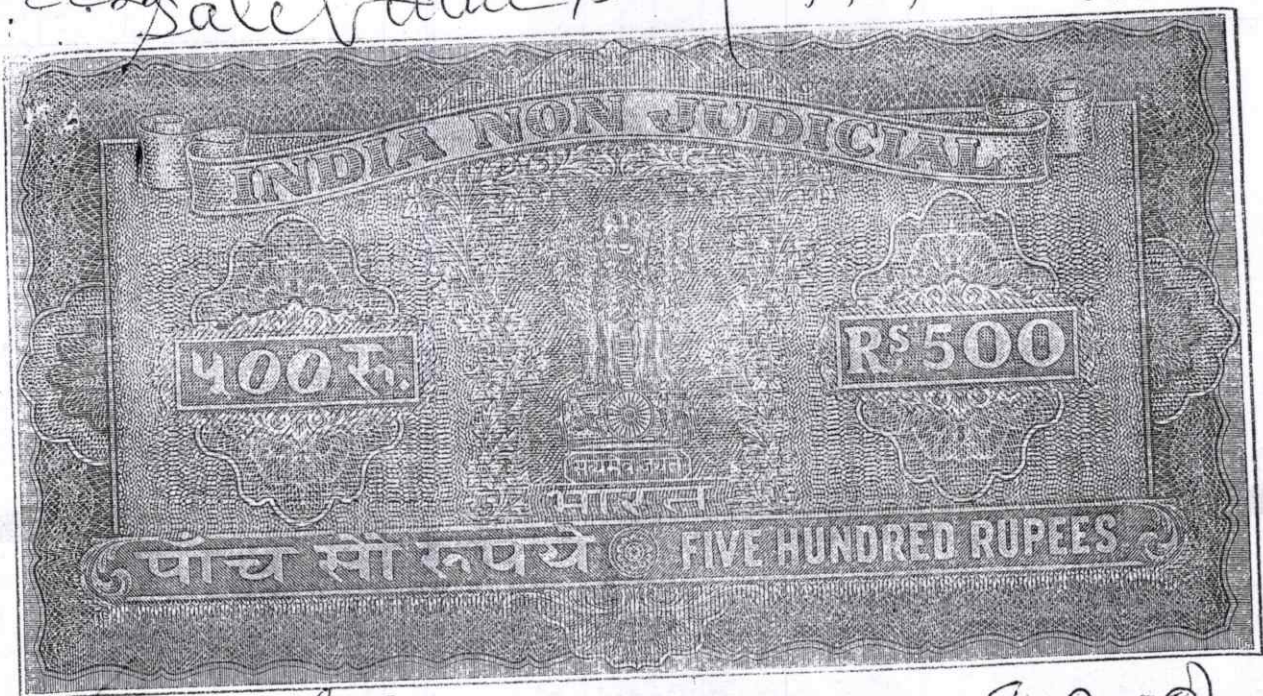 Sale Value
INDIA NON JUDICIAL
५00 रु.
Rs 500
सत्यमेव जयते
भारत
पाँच सौ रुपये FIVE HUNDRED RUPEES